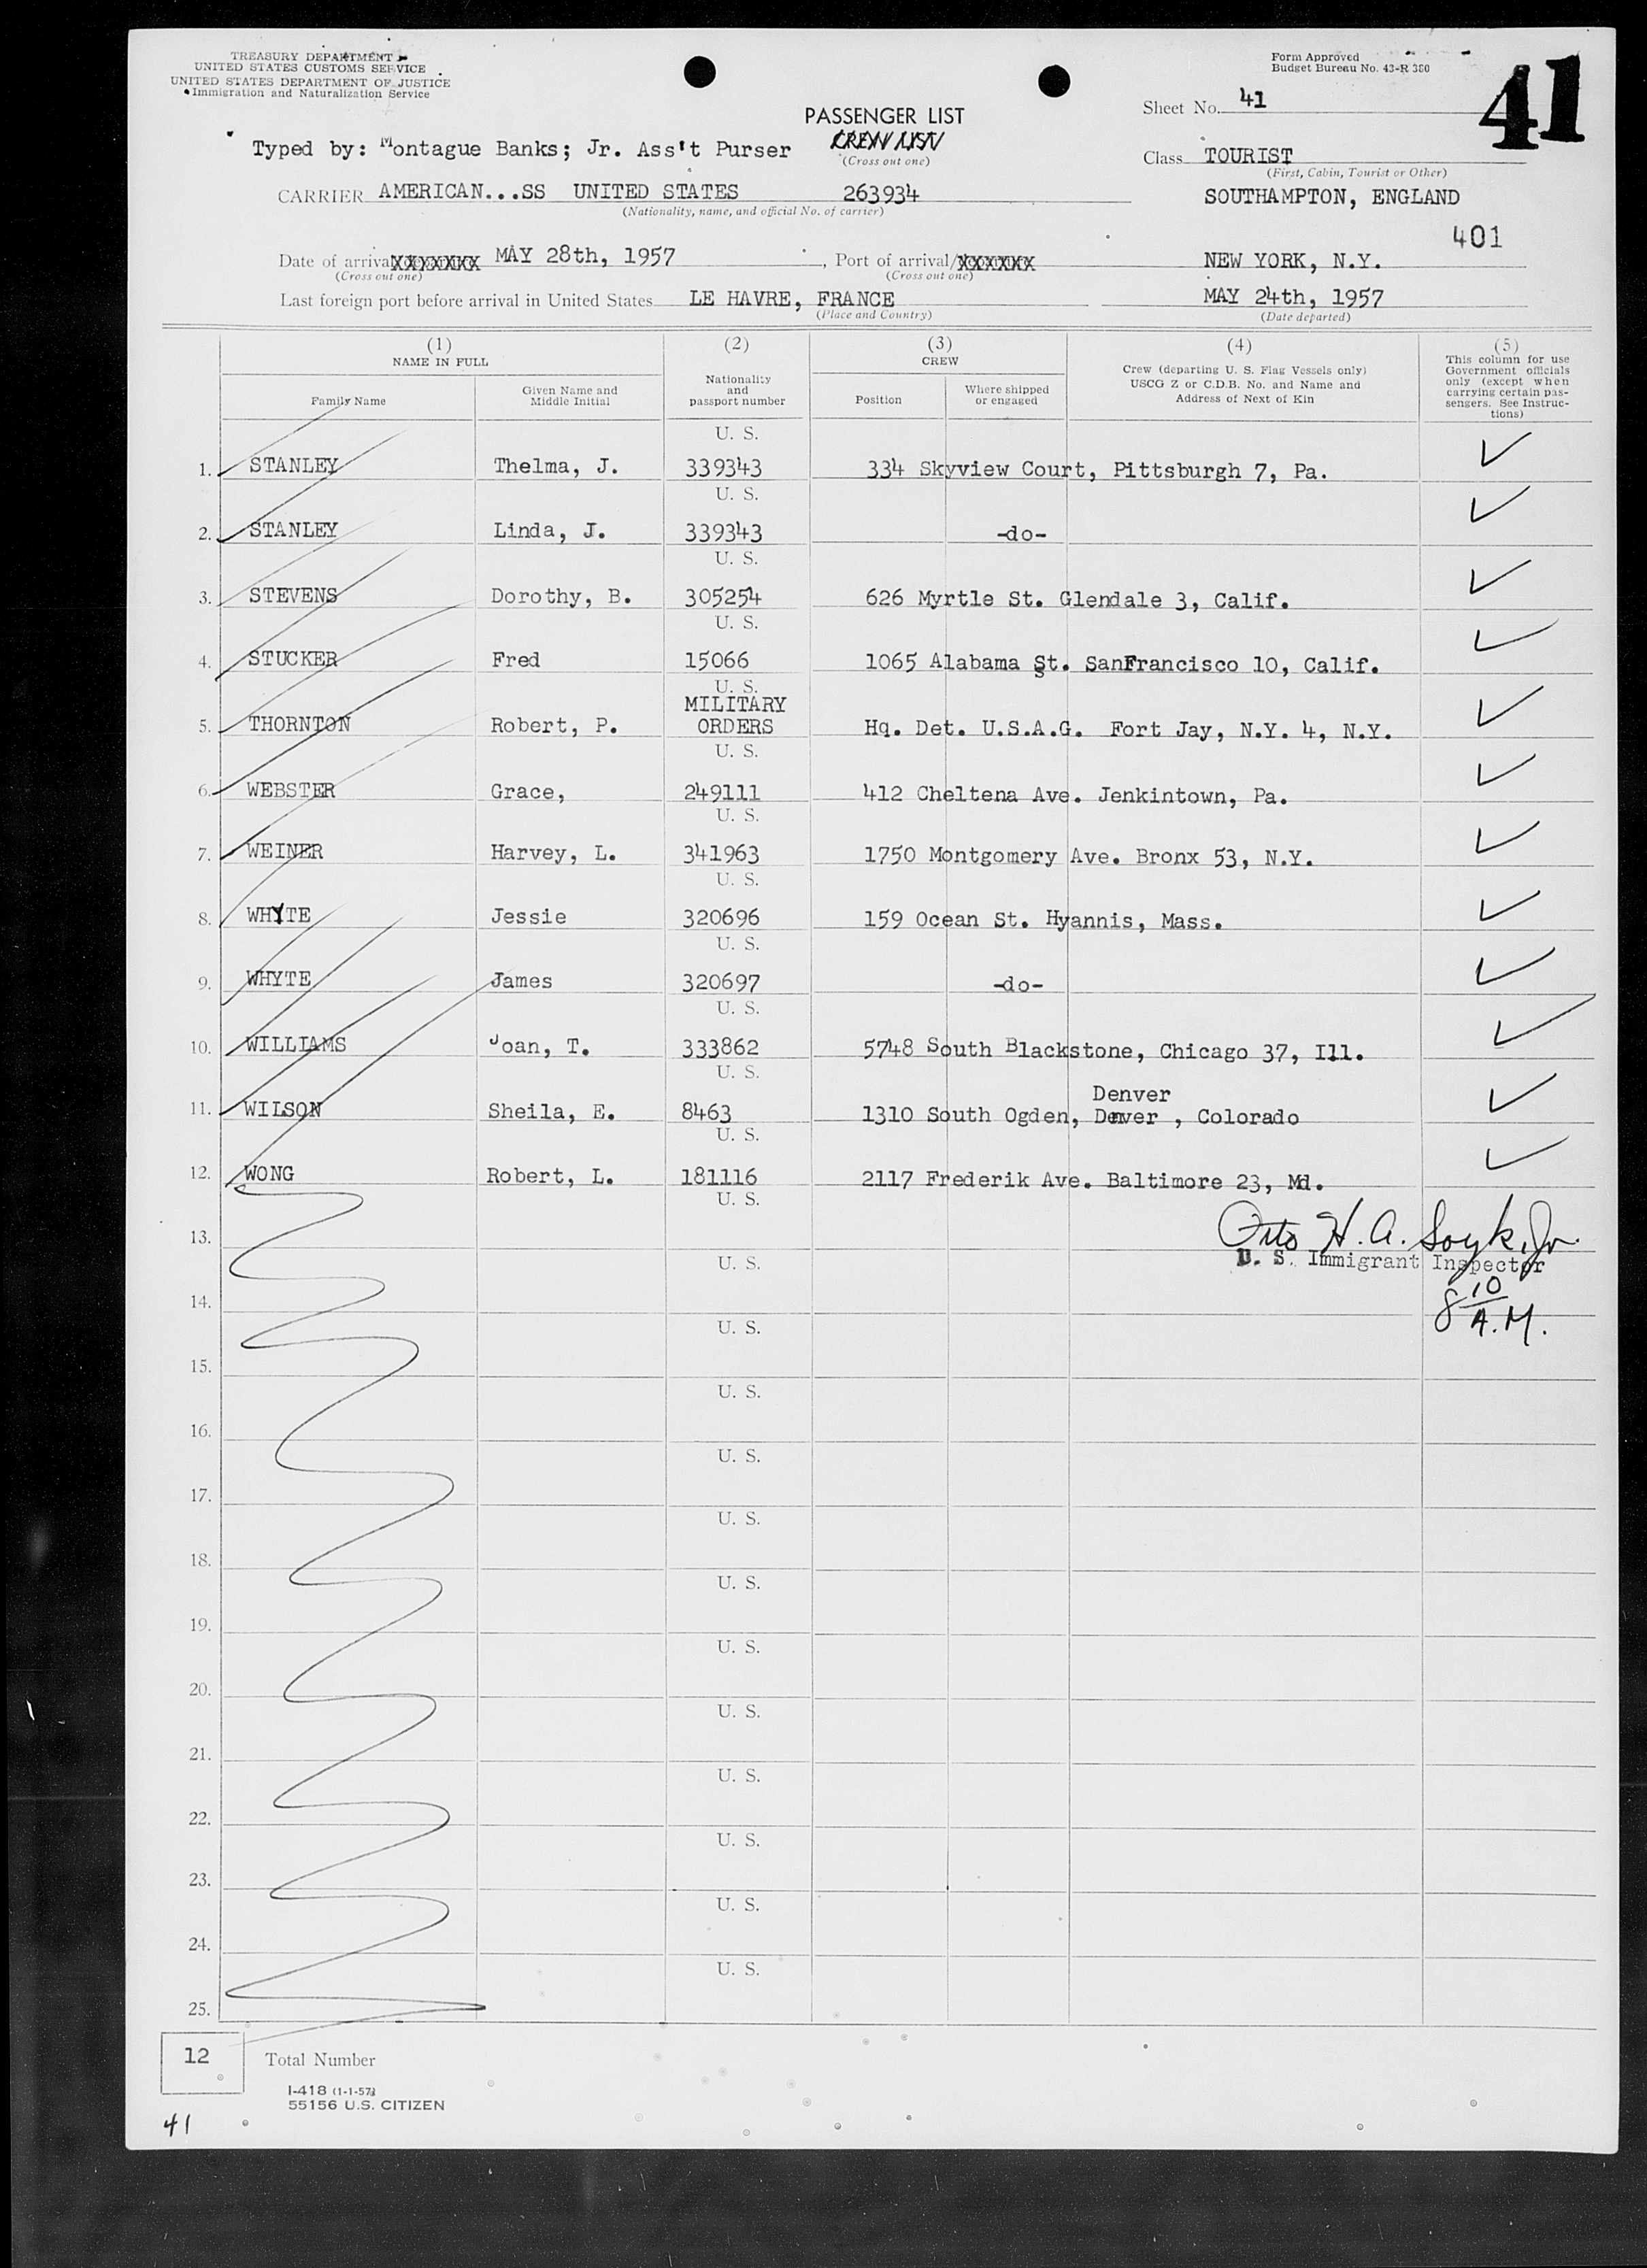 TREASURY DEPARTMENT
UNITED STATES CUSTOMS SERVICE
UNITED STATES DEPARTMENT OF JUSTICE
Immigration and Naturalization Service
Form Approved
Budget Bureau No. 43-R 380
41
Sheet No. 41
PASSENGER LIST
CREW LIST
(Cross out one)
Typed by: Montague Banks; Jr. Ass't Purser
Class TOURIST
(First, Cabin, Tourist or Other)
CARRIER AMERICAN...SS UNITED STATES 263934
(Nationality, name, and official No. of carrier)
SOUTHAMPTON, ENGLAND
401
Date of arrival XXXXXXX MAY 28th, 1957, Port of arrival/XXXXXX NEW YORK, N.Y.
(Cross out one) (Cross out one)
Last foreign port before arrival in United States LE HAVRE, FRANCE MAY 24th, 1957
(Place and Country) (Date departed)
(1) (2) (3) (4) (5)
NAME IN FULL
Family Name
Given Name and Middle Initial
Nationality and passport number
CREW
Position
Where shipped or engaged
Crew (departing U. S. Flag Vessels only)
USCG Z or C.D.B. No. and Name and
Address of Next of Kin
This column for use
Government officials
only (except when
carrying certain pas-
sengers. See Instruc-
tions)
U. S.
1. STANLEY Thelma, J. 339343 334 Skyview Court, Pittsburgh 7, Pa.
U. S.
2. STANLEY Linda, J. 339343 -do-
U. S.
3. STEVENS Dorothy, B. 305254 626 Myrtle St. Glendale 3, Calif.
U. S.
4. STUCKER Fred 15066 1065 Alabama St. SanFrancisco 10, Calif.
U. S.
MILITARY
5. THORNTON Robert, P. ORDERS Hq. Det. U.S.A.G. Fort Jay, N.Y. 4, N.Y.
U. S.
6. WEBSTER Grace, 249111 412 Cheltena Ave. Jenkintown, Pa.
U. S.
7. WEINER Harvey, L. 341963 1750 Montgomery Ave. Bronx 53, N.Y.
U. S.
8. WHYTE Jessie 320696 159 Ocean St. Hyannis, Mass.
U. S.
9. WHYTE James 320697 -do-
U. S.
10. WILLIAMS Joan, T. 333862 5748 South Blackstone, Chicago 37, Ill.
U. S.
Denver
11. WILSON Sheila, E. 8463 1310 South Ogden, Denver , Colorado
U. S.
12. WONG Robert, L. 181116 2117 Frederik Ave. Baltimore 23, Md.
U. S.
13. Otto H. A. Soyk, Jr.
U. S. U. S. Immigrant Inspector
14. 8 10 A.M.
U. S.
15.
U. S.
16.
U. S.
17.
U. S.
18.
U. S.
19.
U. S.
20.
U. S.
21.
U. S.
22.
U. S.
23.
U. S.
24.
U. S.
25.
12 Total Number
I-418 (1-1-57)
55156 U.S. CITIZEN
41